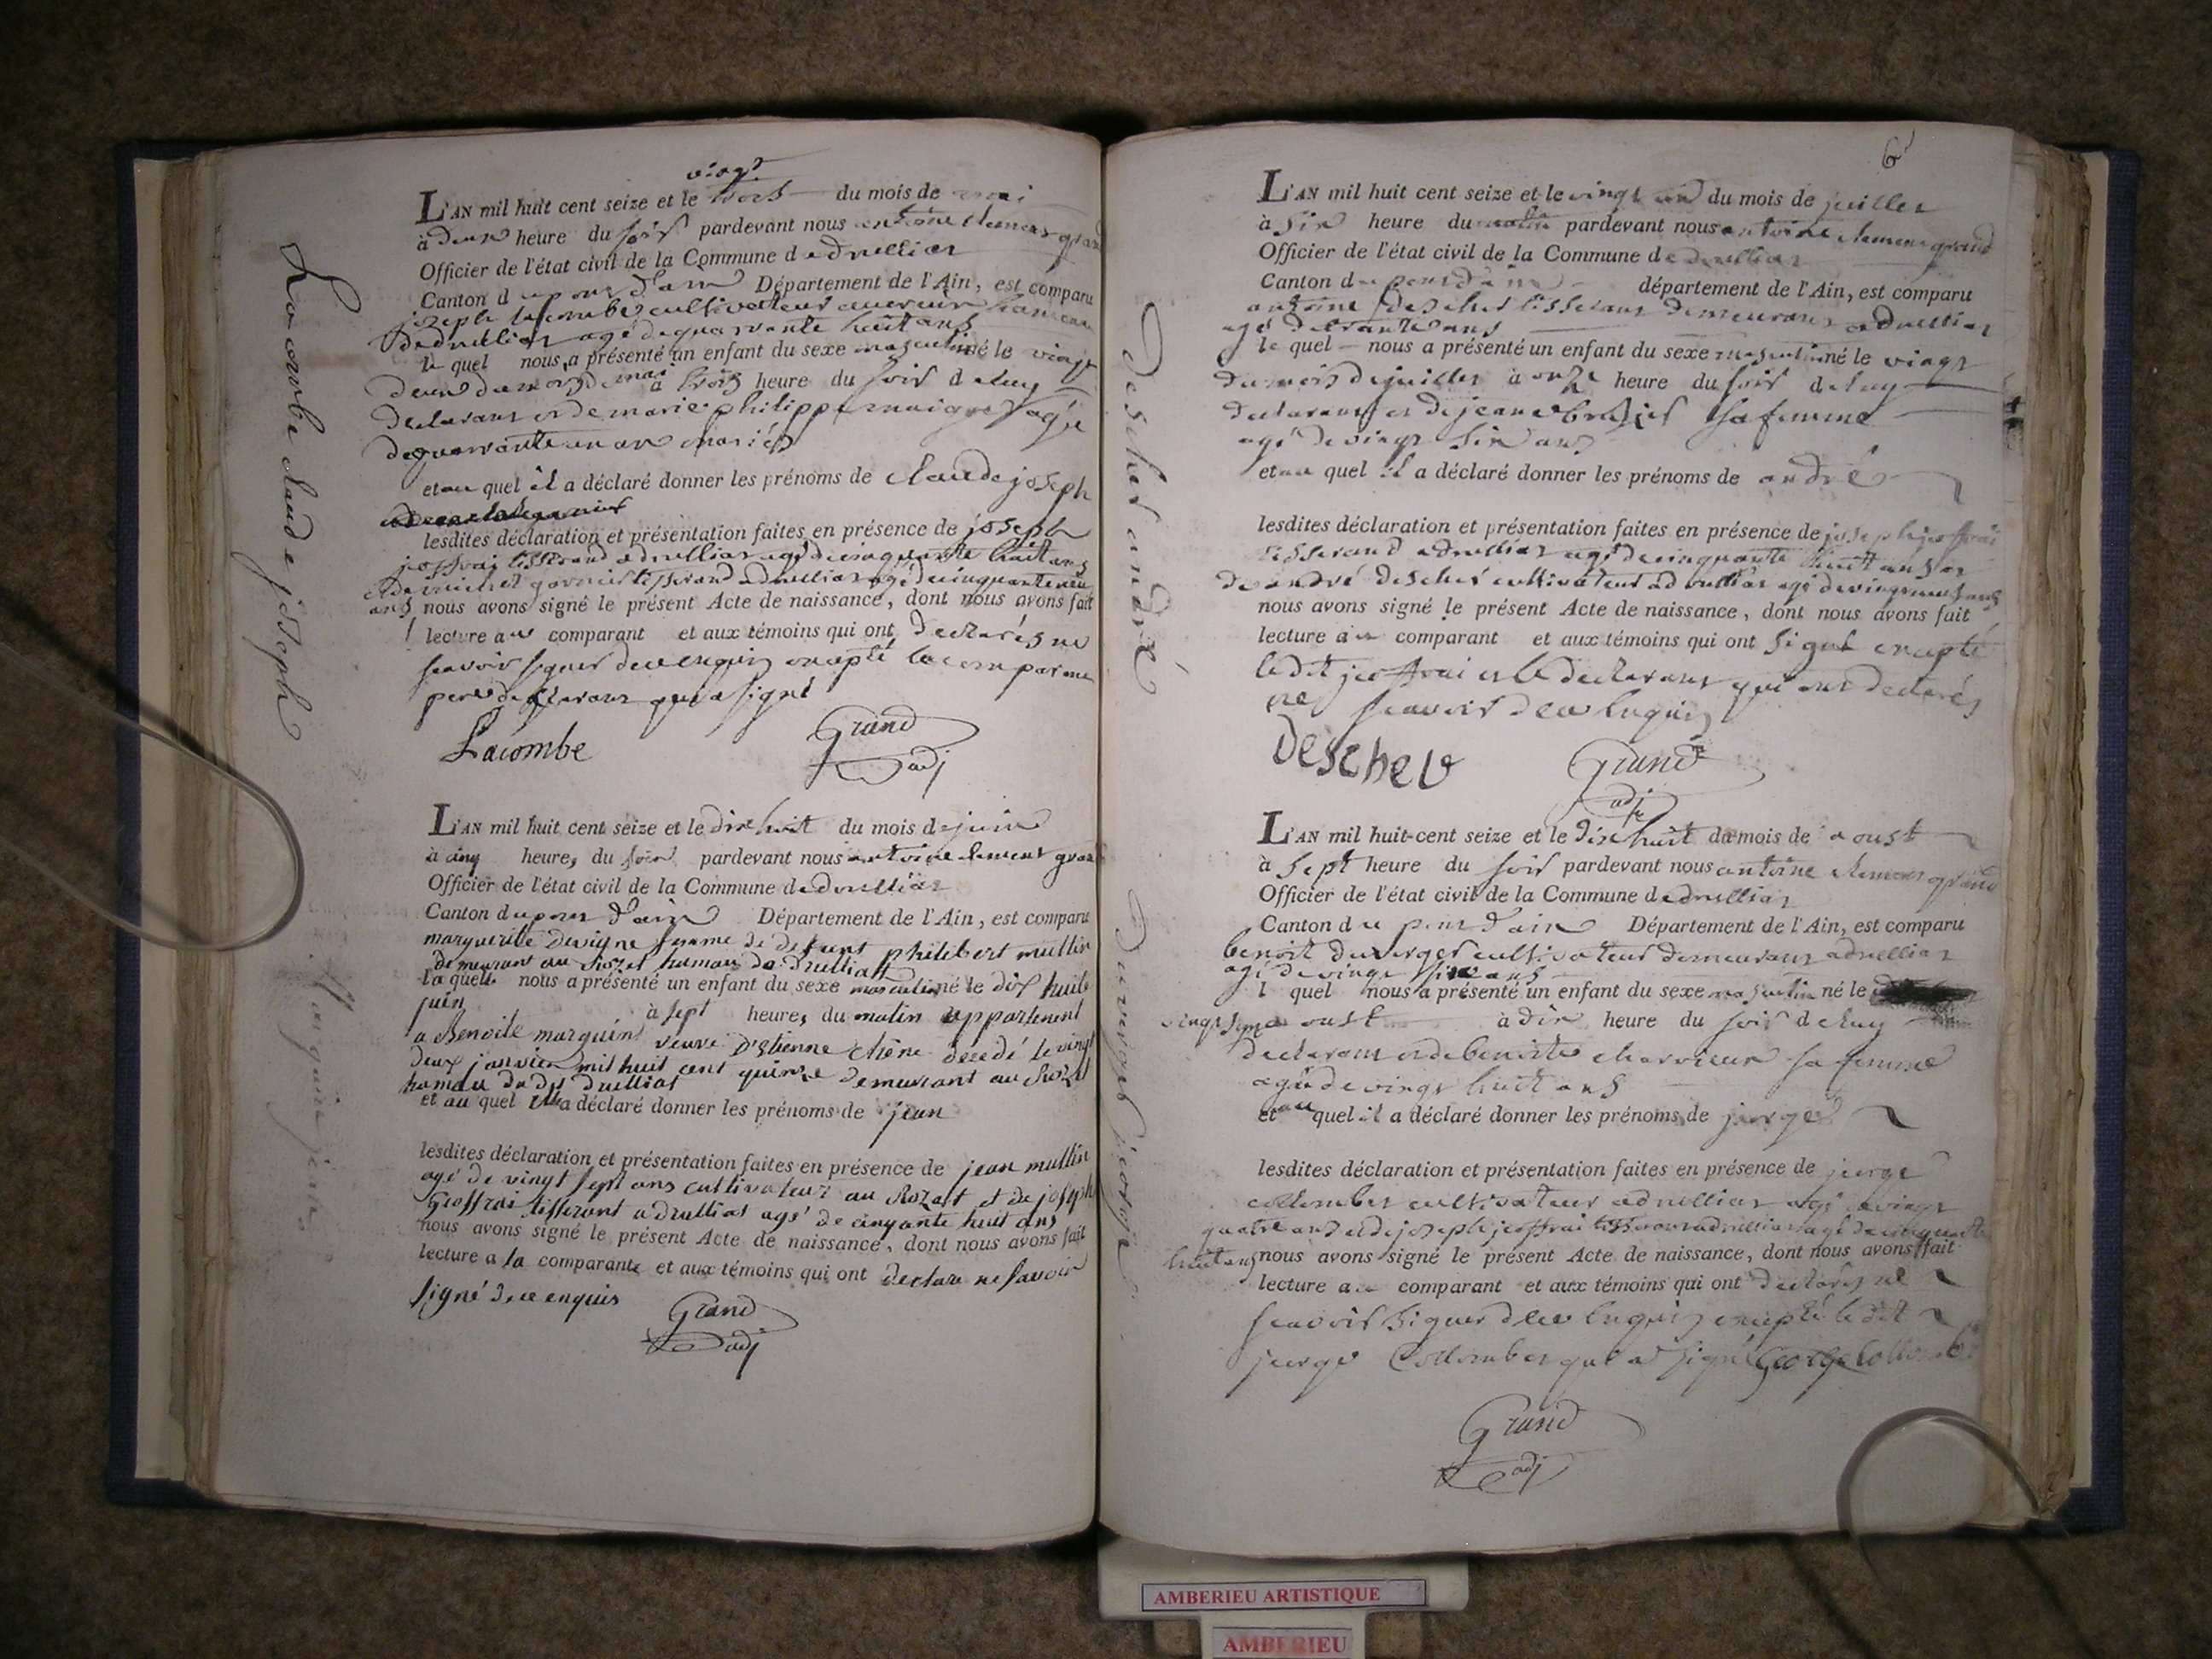 Lacombe claude joseph
vingt
L'AN mil huit cent seize et le trois du mois de mai
à deux heure du soir pardevant nous antoine clement grand
Officier de l'état civil de la Commune de druillias
Canton du pont d'ain Département de l'Ain, est comparu
joseph lacombe cultivateur hameau
de druillias agé de quarrante huit ans
le quel nous a présenté un enfant du sexe masculin né le vingt
deux du mois de mai à trois heure du soir de luy
declarant et de marie philippe maigre agée
de quarrante un an mariés
et au quel il a déclaré donner les prénoms de claude joseph
lesdites déclaration et présentation faites en présence de joseph
joffrai tisserand a druillias agé de cinquante huit ans
et de michel garnier tisserand a druillias agé de cinquante neuf
ans nous avons signé le présent Acte de naissance, dont nous avons fait
lecture au comparant et aux témoins qui ont declarés ne
scavoir signer de ce enquis excepté le comparant
pere declarant qui a signé
Lacombe Grand
adj
L'AN mil huit cent seize et le dix huit du mois de juin
à cinq heures du soir pardevant nous antoine clement grand
Officier de l'état civil de la Commune de druillias
Canton du pont d'ain Département de l'Ain, est comparu
marguerite devigne femme de defunt philibert mullin
demeurant au Rozet hamau de Druillatt
la quelle nous a présenté un enfant du sexe masculin né le dix huit
juin à sept heures du matin appartenent
a Benoite marguin veuve D'Etienne chêne decedé le vingt
deux janvier mil huit cent quinze demeurant au Rozet
hamau du dit druillias
et au quel elle a déclaré donner les prénoms de jean
lesdites déclaration et présentation faites en présence de jean mullin
agé de vingt sept ans cultivateur au Rozet et de joseph
Geoffrai tisserant a druillias agé de cinquante huit ans
nous avons signé le présent Acte de naissance, dont nous avons fait
lecture a la comparante et aux témoins qui ont declare ne savoir
signé de ce enquis Grand
adj
6
Descher andré
L'AN mil huit cent seize et le vingt un du mois de juillet
à six heure du matin pardevant nous antoine clement grand
Officier de l'état civil de la Commune de druillias
Canton du pont d'ain département de l'Ain, est comparu
antoine descher tisserant demeurant a druillias
agé de trante ans
le quel nous a présenté un enfant du sexe masculin né le vingt
du mois de juillet à onze heure du soir de luy
declarant et de jeane sa femme
agé de vingt six ans
et au quel il a déclaré donner les prénoms de andré
lesdites déclaration et présentation faites en présence de joseph joffrai
tisserand a druillias agé de cinquante huit ans et
de andré descher cultivateur a druillias agé de vingt neuf ans
nous avons signé le présent Acte de naissance, dont nous avons fait
lecture au comparant et aux témoins qui ont signé excepté
le dit joffrai et le declarant qui ont declarés
ne scavoir de ce enquis
Descher Grand
adj
Duverger jeorge
L'AN mil huit-cent seize et le dix huit du mois de aoust
à sept heure du soir pardevant nous antoine clement grand
Officier de l'état civil de la Commune de druillias
Canton du pont d'ain Département de l'Ain, est comparu
benoit duverger cultivateur demeurant a druillias
agé de vingt six ans
l quel nous a présenté un enfant du sexe masculin né le
aoust à dix heure du soir de luy
declarant et de benoite charvieux sa femme
agée de vingt huit ans
et au quel il a déclaré donner les prénoms de jeorge
lesdites déclaration et présentation faites en présence de jeorge
collomber cultivateur a druillias agé de vingt
quatre ans et de joseph joffrai tisserant a druillias agé de cinquante
huit ans nous avons signé le présent Acte de naissance, dont nous avons fait
lecture au comparant et aux témoins qui ont declarés ne
scavoir signer de ce enquis excepté le dit
jeorge Collomber qui a signé George Collombe
Grand
adj
AMBERIEU ARTISTIQUE
AMBERIEU